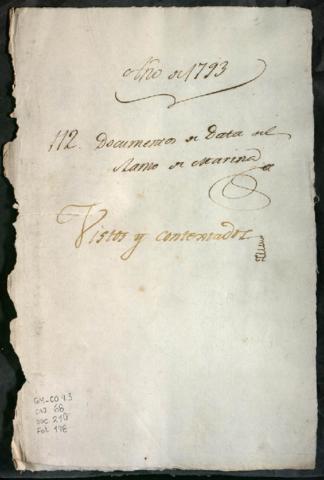 Año de 1793
112. Documentos de Data del
Ramo de Marina
Vistos y contextados
GM-CO 13
CAJ 68
DOC 210
Fol 198